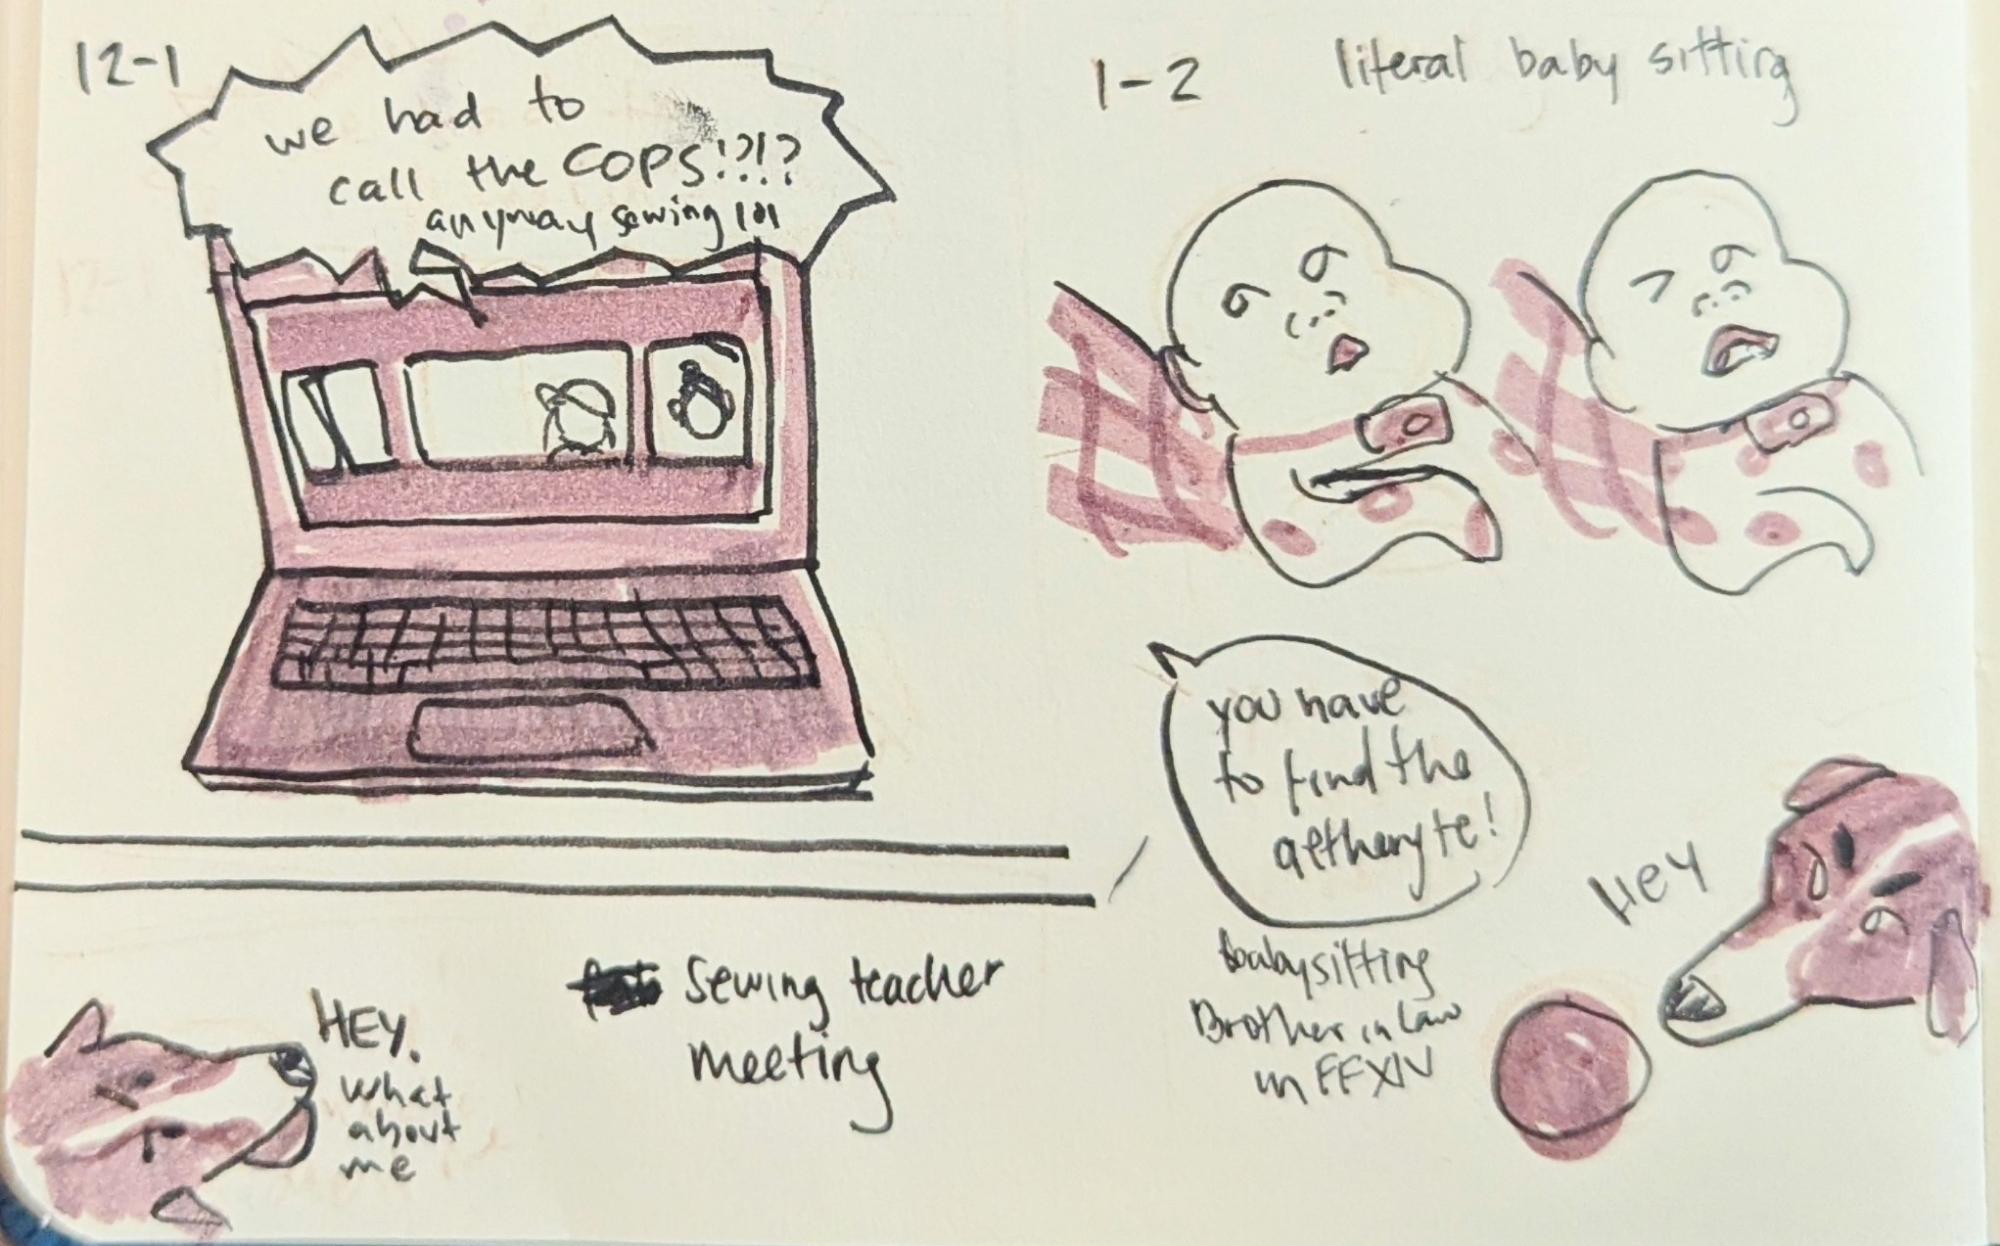 12-1
we had to
call the COPS!?!?
anyway sewing lol
HEY.
what
about
me
sewing teacher
meeting
1-2
literal baby sitting
you have
to find the
aetheryte!
babysitting
Brother in Law
in FFXIV
HEY